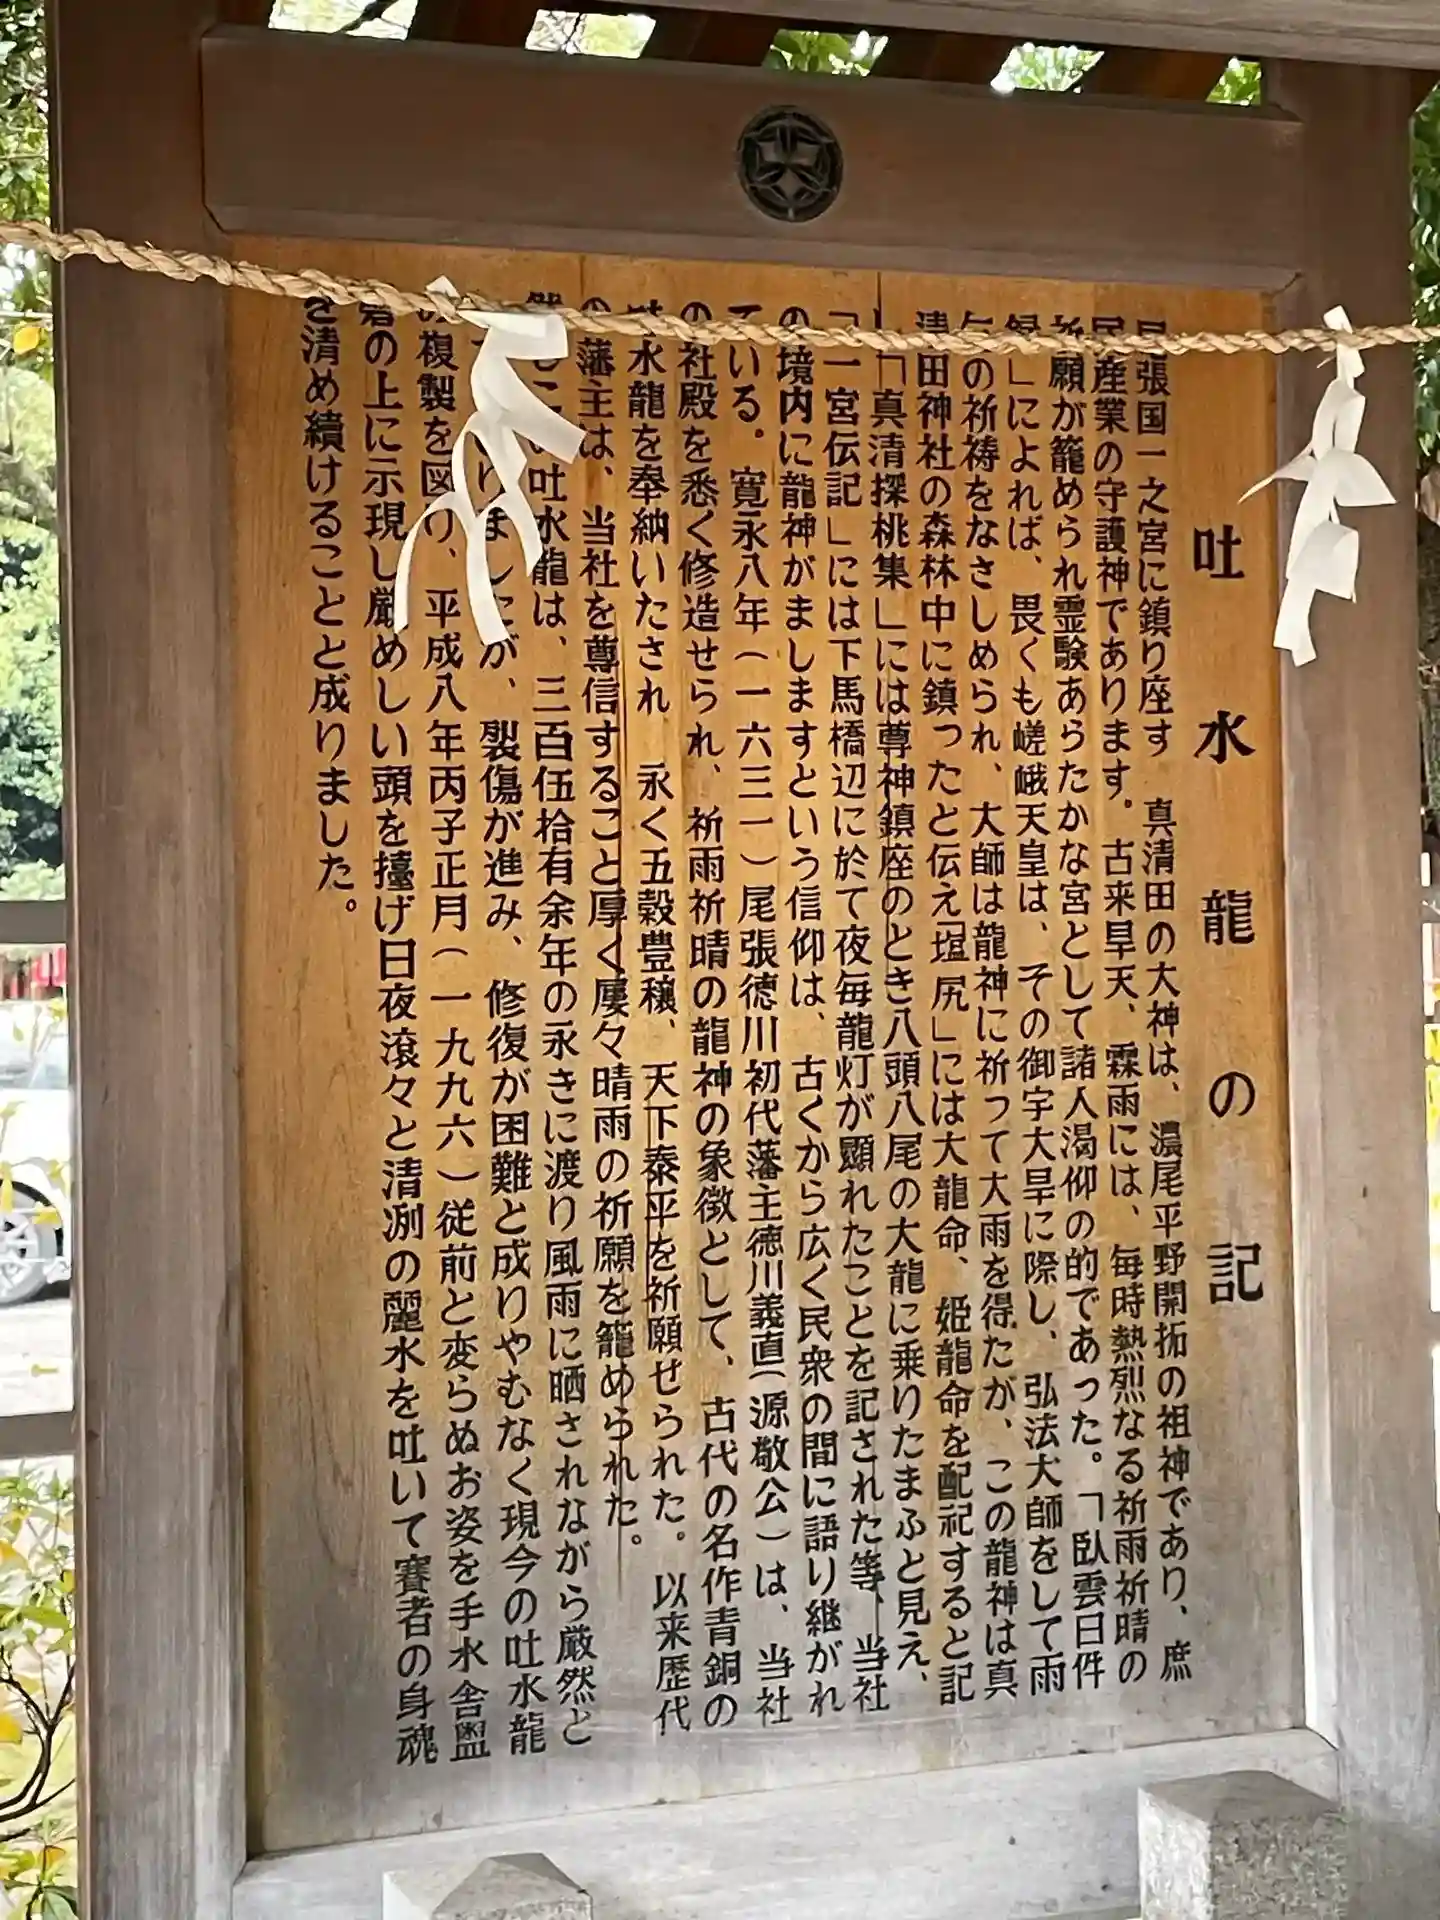 吐水龍の記
尾張国一之宮に鎮り座す 真清田の大神は、濃尾平野開拓の祖神であり、庶
民産業の守護神であります。古来旱天、霖雨には、毎時熱烈なる祈雨祈晴の
祈願が籠められ霊験あらたかな宮として諸人渇仰の的であった。「臥雲日件
録」によれば、畏くも嵯峨天皇は、その御宇大旱に際し、弘法大師をして雨
の祈祷をなさしめられ、大師は龍神に祈って大雨を得たが、この龍神は真
清田神社の森林中に鎮ったと伝え「塩尻」には大龍命、姫龍命を配祀すると記
し「真清探桃集」には尊神鎮座のとき八頭八尾の大龍に乗りたまふと見え、
「一宮伝記」には下馬橋辺に於て夜毎龍灯が顕れたことを記された等、当社
の境内に龍神がましますという信仰は、古くから広く民衆の間に語り継がれ
ている。寛永八年(一六三一)尾張徳川初代藩主徳川義直(源敬公)は、当社
の社殿を悉く修造せられ、祈雨祈晴の龍神の象徴として、古代の名作青銅の
吐水龍を奉納いたされ 永く五穀豊穣、天下泰平を祈願せられた。以来歴代
の藩主は、当社を尊信すること厚く屡々晴雨の祈願を籠められた。
吐水龍は、三百伍拾有余年の永きに渡り風雨に晒されながら厳然と
りましたが、裂傷が進み、修復が困難と成りやむなく現今の吐水龍
の複製を図り、平成八年丙子正月(一九九六)従前と変らぬお姿を手水舎盥
岩の上に示現し厳めしい頭を擡げ日夜滾々と清冽の麗水を吐いて賽者の身魂
を清め続けることと成りました。